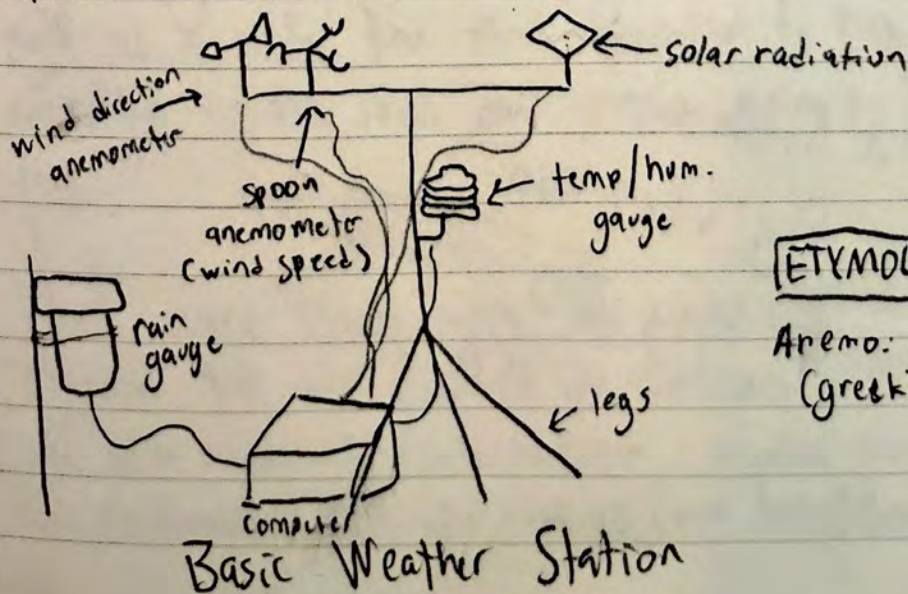 solar radiation
wind direction
anemometer
spoon
anemometer
(wind speed)
temp/hum.
gauge
rain
gauge
ETYMOL
Anemo:
(greek)
legs
computer
Basic Weather Station